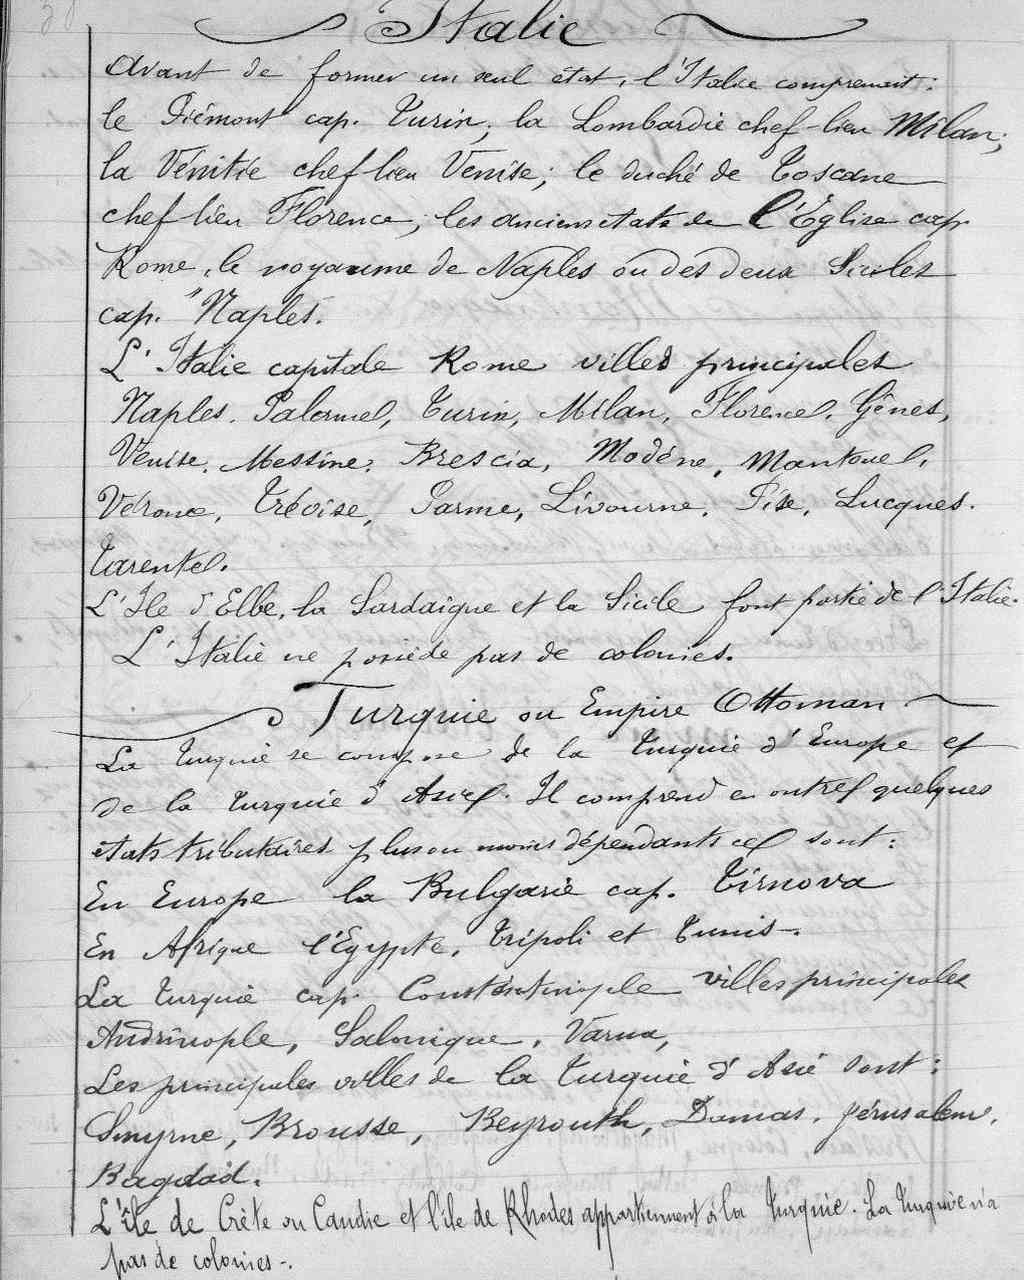 Italie
Avant de former un seul état, l'Italie comprenait :
le Piémont cap. Turin, la Lombardie chef-lieu Milan;
la Vénitie chef lieu Venise; le duché de Toscane
chef lieu Florence, les anciens états de l'Église cap.
Rome, le royaume de Naples ou des deux Siciles
cap. Naples.
L'Italie capitale Rome villes principales
Naples. Palerme, Turin, Milan, Florence, Gênes,
Venise, Messine, Brescia, Modène, Mantoue,
Vérone, Trévise, Parme, Livourne, Pise, Lucques.
Tarente.
L'Ile d'Elbe, la Sardaigne et la Sicile font partie de l'Italie.
L'Italie ne possède pas de colonies.
Turquie ou Empire Ottoman
La Turquie se compose de la Turquie d'Europe et
de la Turquie d'Asie. Il comprend en outre quelques
états tributaires plus ou moins dépendants ce sont :
En Europe la Bulgarie cap. Tirnova
En Afrique l'Égypte, Tripoli et Tunis.
La Turquie cap. Constantinople villes principales
Andrinople, Salonique, Varna,
Les principales villes de la Turquie d'Asie sont :
Smyrne, Brousse, Beyrouth, Damas, Jérusalem,
Bagdad.
L'île de Crète ou Candie et l'île de Rhodes appartiennent à la Turquie. La Turquie n'a
pas de colonies.